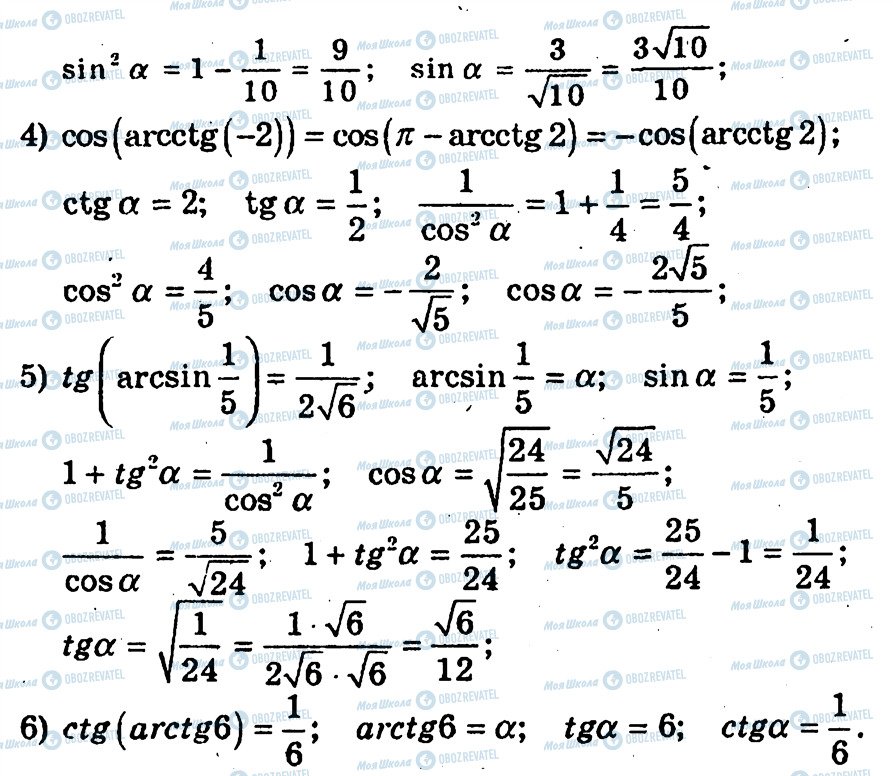 sin² α = 1 − 1/10 = 9/10; sin α = 3/√10 = 3√10/10;
4) cos(arcctg(−2)) = cos(π − arcctg 2) = −cos(arcctg 2);
ctg α = 2; tg α = 1/2; 1/cos² α = 1 + 1/4 = 5/4;
cos² α = 4/5; cos α = −2/√5; cos α = −2√5/5;
5) tg(arcsin 1/5) = 1/2√6; arcsin 1/5 = α; sin α = 1/5;
1 + tg²α = 1/cos² α; cos α = √(24/25) = √24/5;
1/cos α = 5/√24; 1 + tg²α = 25/24; tg²α = 25/24 − 1 = 1/24;
tgα = √(1/24) = 1·√6/2√6·√6 = √6/12;
6) ctg(arctg6) = 1/6; arctg6 = α; tgα = 6; ctgα = 1/6.
Моя Школа OBOZREVATEL